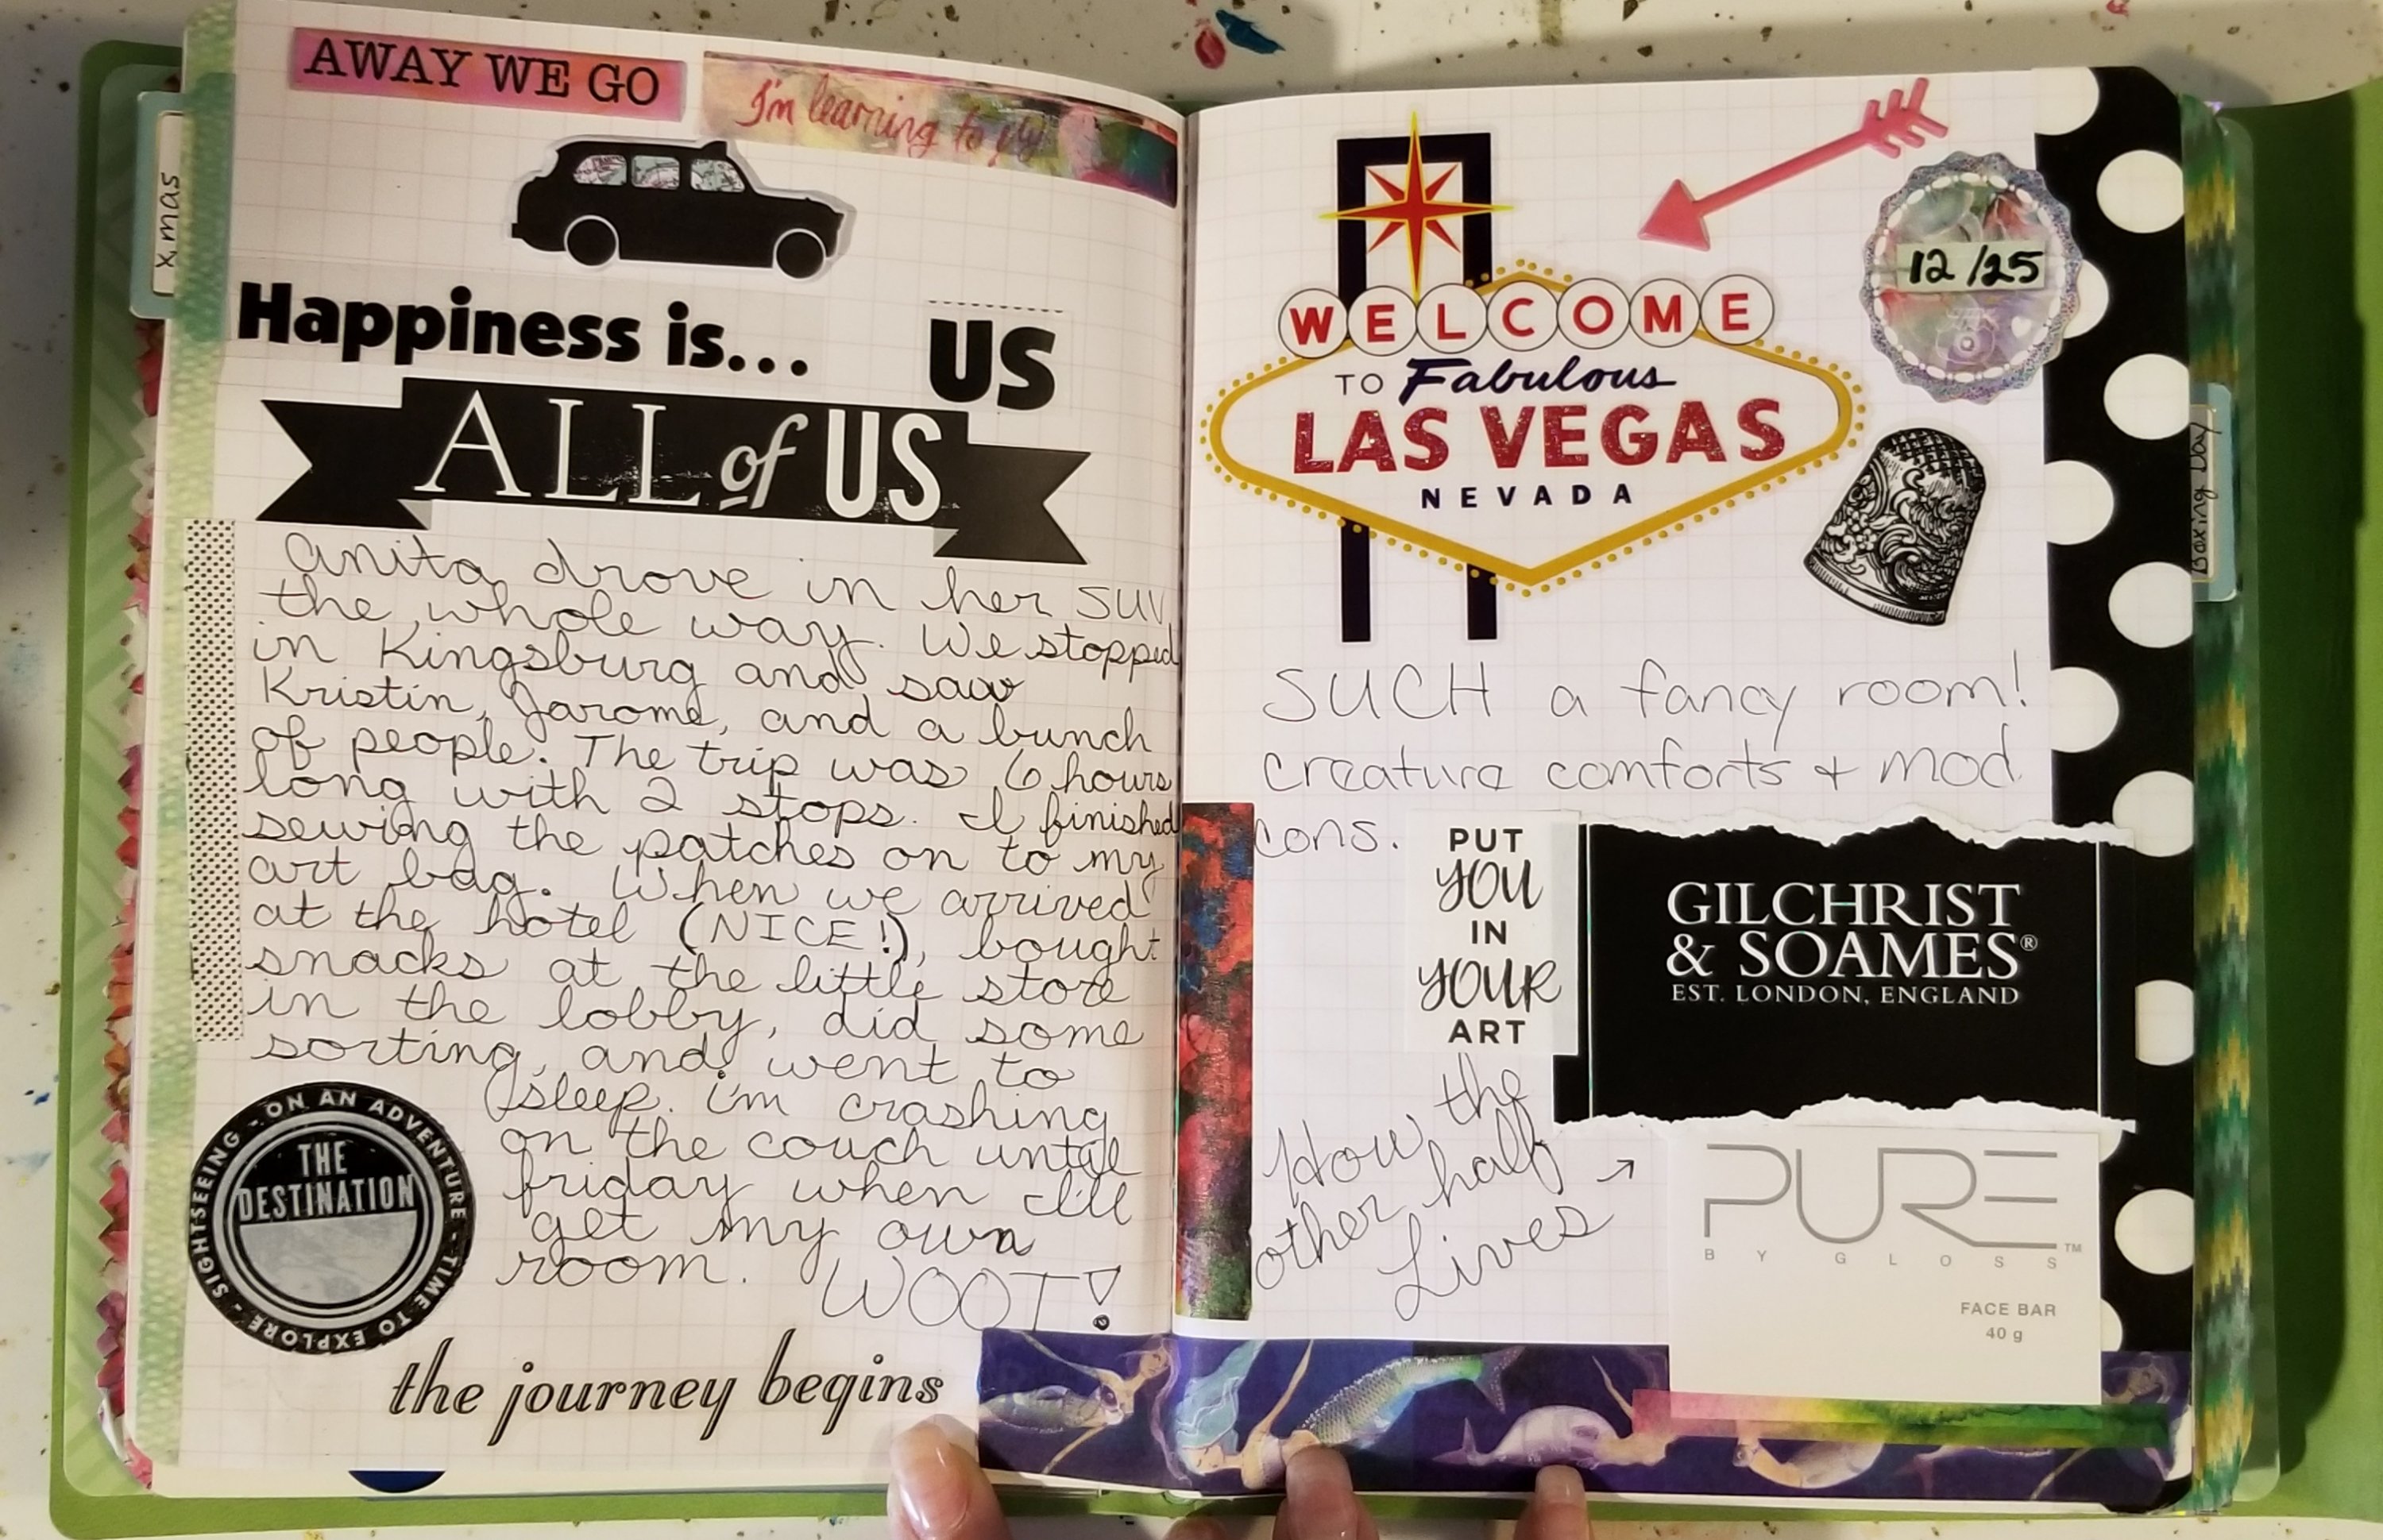 AWAY WE GO
I'm learning to fly
xmas
Happiness is...
US
ALL of US
Anita drove in her SUV
the whole way. We stopped
in Kingsburg and saw
Kristin, Jarome, and a bunch
of people. The trip was 6 hours
long with 2 stops. I finished
sewing the patches on to my
art bag. When we arrived
at the hotel (NICE!), bought
snacks at the little store
in the lobby, did some
sorting, and went to
sleep. i'm crashing
on the couch until
friday when I'll
get my own
room. WOOT!
SIGHTSEEING - ON AN ADVENTURE - TIME TO EXPLORE -
THE
DESTINATION
the journey begins
12/25
WELCOME
TO Fabulous
LAS VEGAS
NEVADA
Boxing Day
SUCH a fancy room!
creature comforts + mod
cons.
PUT
YOU
IN
YOUR
ART
GILCHRIST
& SOAMES®
EST. LONDON, ENGLAND
How the
other half
Lives →
PURE™
BY GLOSS
FACE BAR
40 g